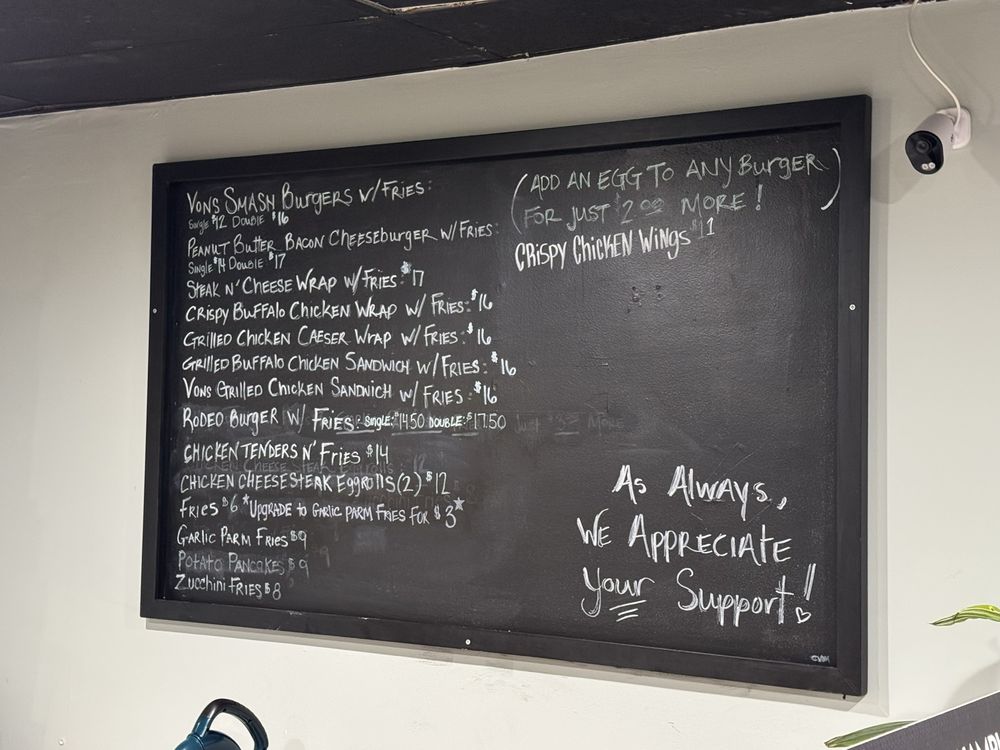 Vons Smash Burgers w/Fries:
Single $12 Double $16
Peanut Butter Bacon Cheeseburger w/Fries:
Single $14 Double $17
Steak n' Cheese Wrap w/Fries: $17
Crispy Buffalo Chicken Wrap w/ Fries: $16
Grilled Chicken Caeser Wrap w/ Fries: $16
Grilled Buffalo Chicken Sandwich w/ Fries: $16
Vons Grilled Chicken Sandwich w/ Fries: $16
Rodeo Burger w/ Fries: Single: $14.50 Double: $17.50
Chicken Tenders n' Fries $14
Chicken Cheesesteak Eggrolls (2) $12
Fries $6 *Upgrade to Garlic Parm Fries for $3*
Garlic Parm Fries $9
Potato Pancakes $9
Zucchini Fries $8
(Add an egg to any Burger
for just $2.00 more!)
Crispy Chicken Wings $11
As Always,
We Appreciate
your Support!